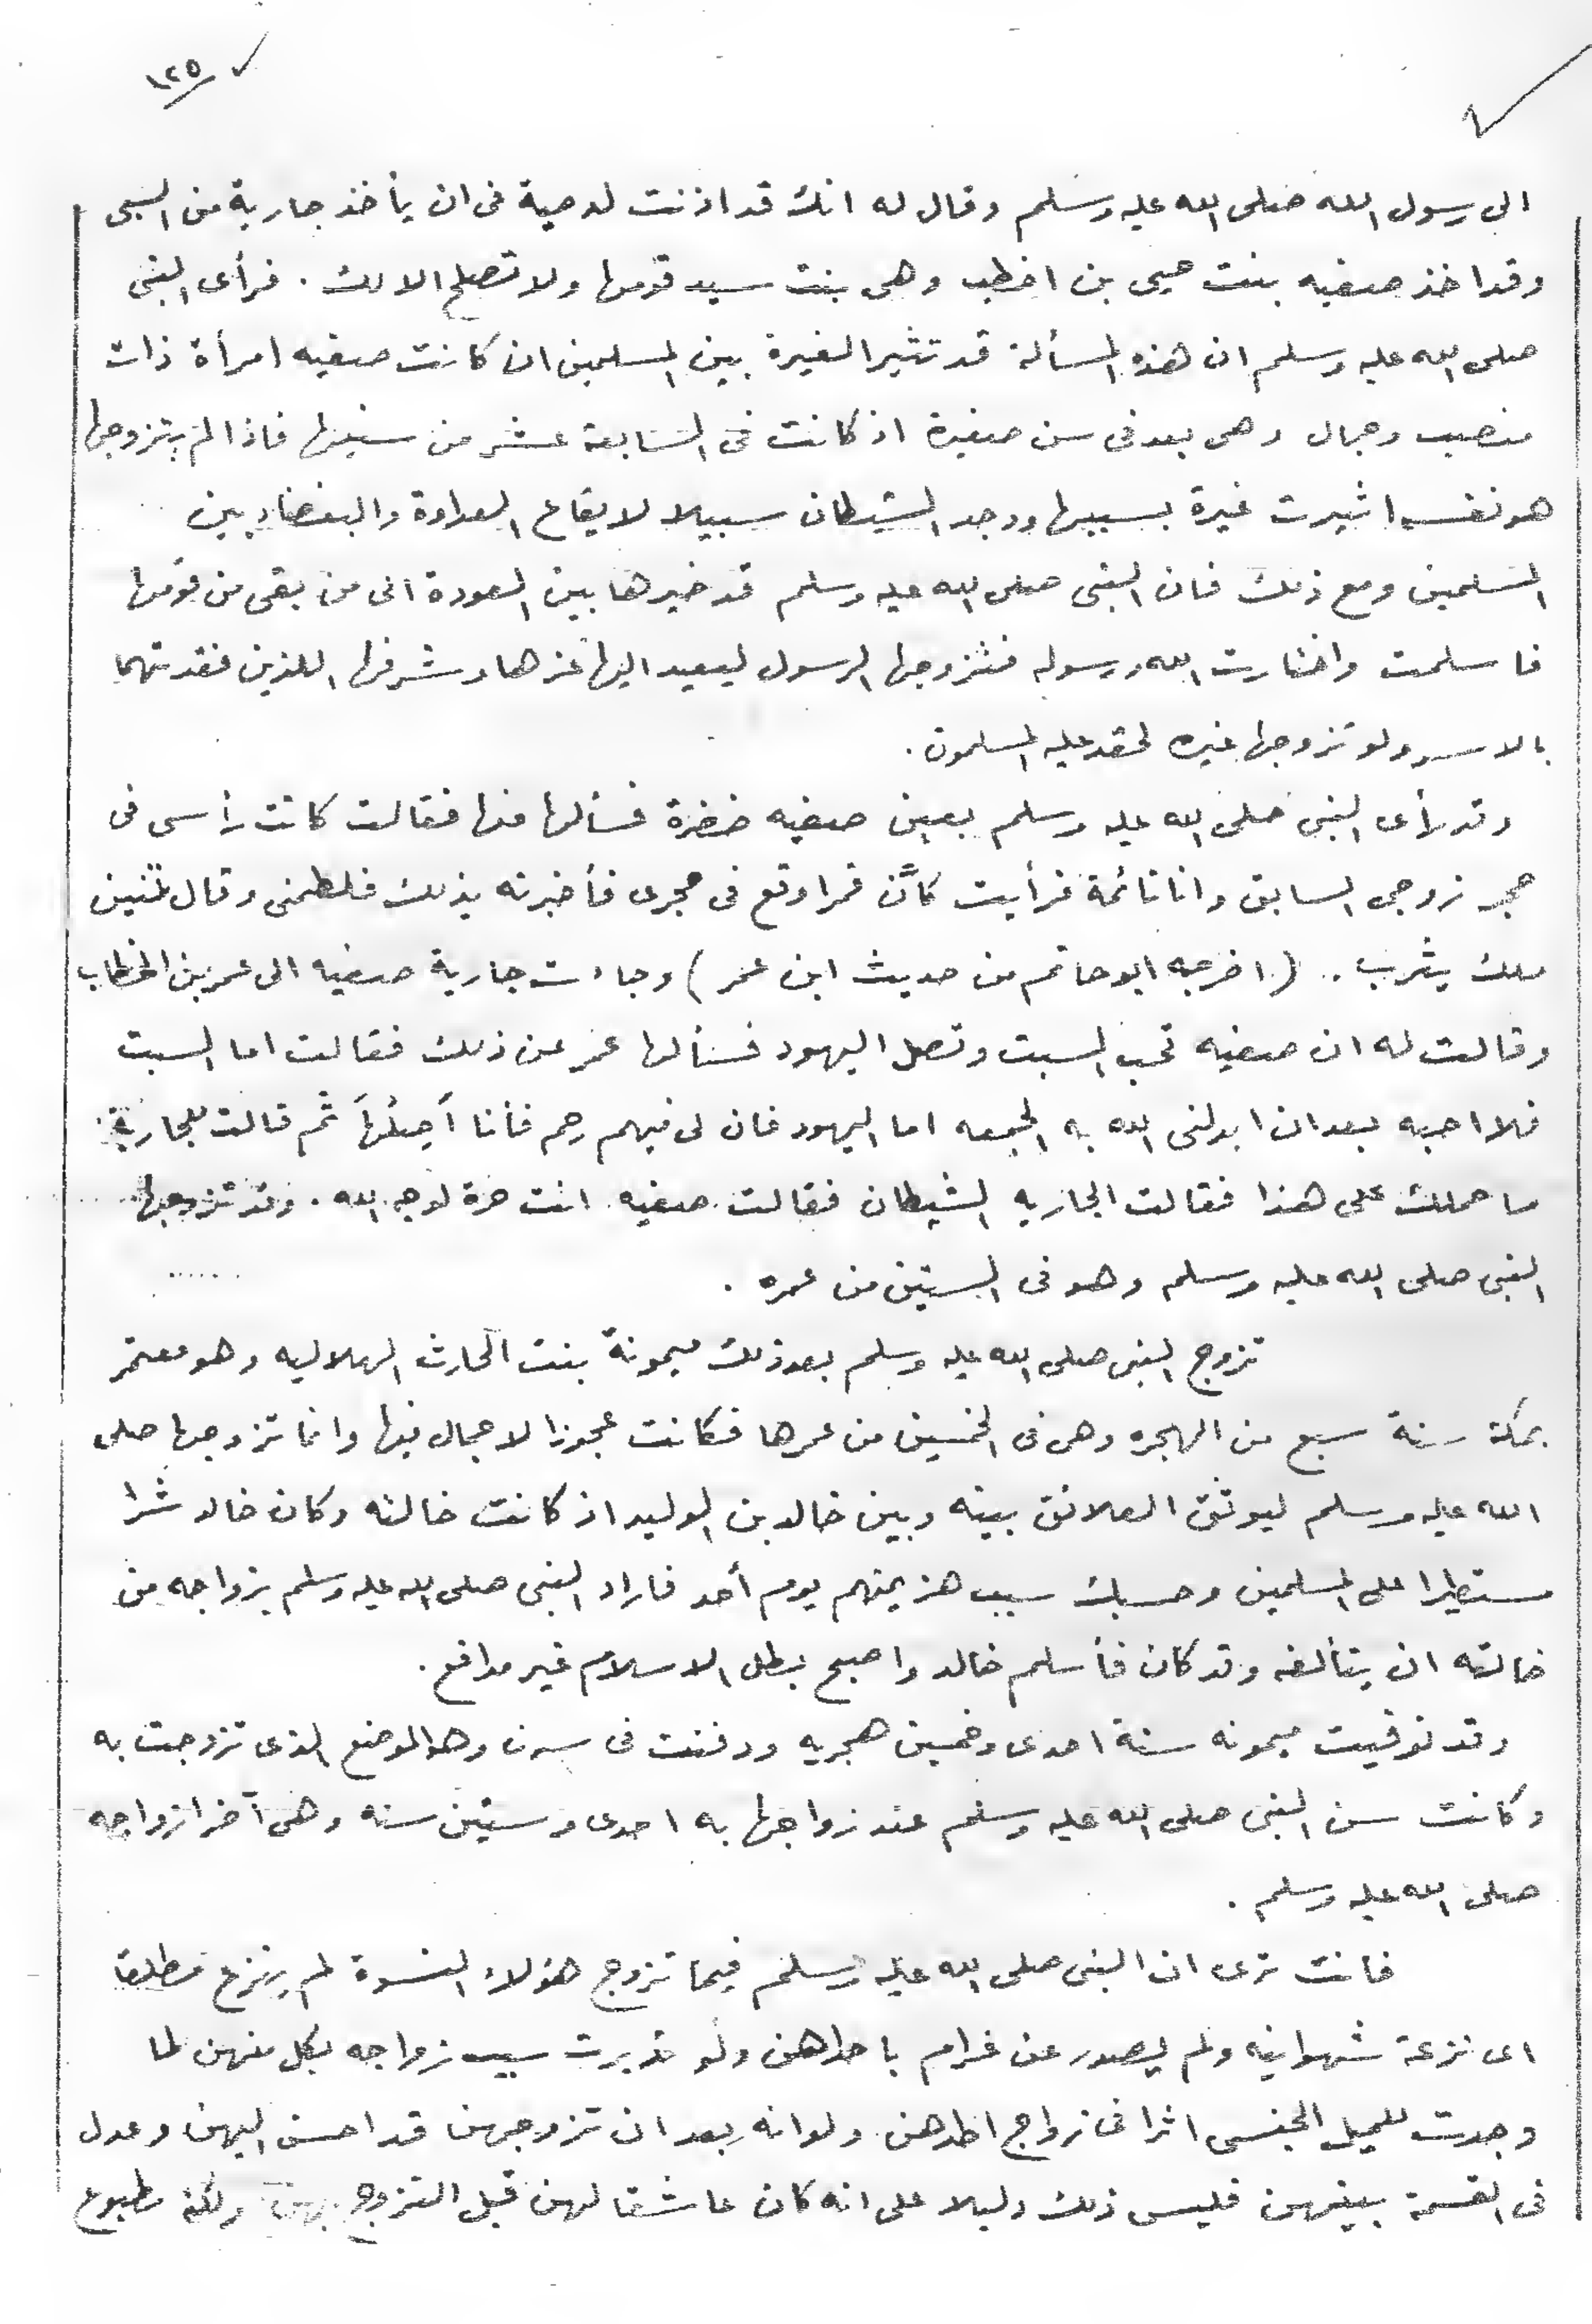 ١٢٥
الى رسول الله صلى الله عليه وسلم وقال له انك قد اذنت لدحية فى ان يأخذ جارية من السبى
وقد اخذ صفيه بنت حيى بن اخطب وهى بنت سيد قومها ولا تصلح الا لك . فرأى النبى
صلى الله عليه وسلم ان هذه المسألة قد تثير الغيرة بين المسلمين ان كانت صفيه امرأة ذات
منصب وجمال وهى بعد فى سن صغيرة اذ كانت فى السابعة عشر من سنيها فاذا لم يتزوجها
هو نفسه اثيرت غيرة بسببها ووجد الشيطان سبيلا لايقاع العداوة والبغضاء بين
المسلمين ومع ذلك فان النبى صلى الله عليه وسلم قد خيرها بين العودة الى من بقى من قومها
فاسلمت واختارت الله ورسوله فتزوجها الرسول ليعيد اليها عزها وشرفها اللذين فقدتهما
بالاسر ولو تزوجها غيره لحقد عليه المسلمون .
وقد رأى النبى صلى الله عليه وسلم بعين صفيه خضرة فسألها عنها فقالت كانت رأسى فى
حجر زوجى السابق وانا نائمة فرأيت كأن قمرا وقع فى حجرى فأخبرته بذلك فلطمنى وقال تمنين
ملك يثرب .. ( اخرجه ابو حاتم من حديث ابن عمر ) وجاءت جارية صفيه الى عمر بن الخطاب
وقالت له ان صفيه تحب السبت وتصل اليهود فسألها عمر عن ذلك فقالت اما السبت
فلا احبه بعد ان ابدلنى الله به الجمعه اما اليهود فان لى فيهم رحم فأنا أَصِلُهَا ثم قالت للجارية
ما حملك على هذا فقالت الجاريه الشيطان فقالت صفيه انت حرة لوجه الله . وقد تزوجها
النبى صلى الله عليه وسلم وهو فى الستين من عمره .
تزوج النبى صلى الله عليه وسلم بعد ذلك ميمونة بنت الحارث الهلاليه وهو معتمر
بمكة سنة سبع من الهجره وهى فى الخمسين من عمرها فكانت عجوزا لا جمال فيها وانما تزوجها صلى
الله عليه وسلم ليوثق العلائق بينه وبين خالد بن الوليد اذ كانت خالته وكان خالد شرا
مستطيرا على المسلمين وحسبك سبب هزيمتهم يوم أحد فاراد النبى صلى الله عليه وسلم بزواجه من
خالته ان يتألفه وقد كان فأسلم خالد واصبح بطل الاسلام غير مدافع .
وقد توفيت ميمونه سنة احدى وخمسين هجريه ودفنت فى سرف وهو الموضع الذى تزوجت به
وكانت سن النبى صلى الله عليه وسلم عند زواجها به احدى وستين سنه وهى آخر ازواجه
صلى الله عليه وسلم .
فانت ترى ان النبى صلى الله عليه وسلم فيما تزوج هؤلاء النسوة لم ينزع مطلقا
اى نزعة شهوانيه ولم يصدر عن غرام باحداهن ولو تدبرت سبب زواجه بكل منهن لما
وجدت للميل الجنسى اثرا فى زواج احداهن ولو انه بعد ان تزوجهن قد احسن اليهن وعدل
فى القسمة بينهن فليس ذلك دليلا على انه كان عاشقا لهن قبل التزوج بهن ولكنه مطبوع